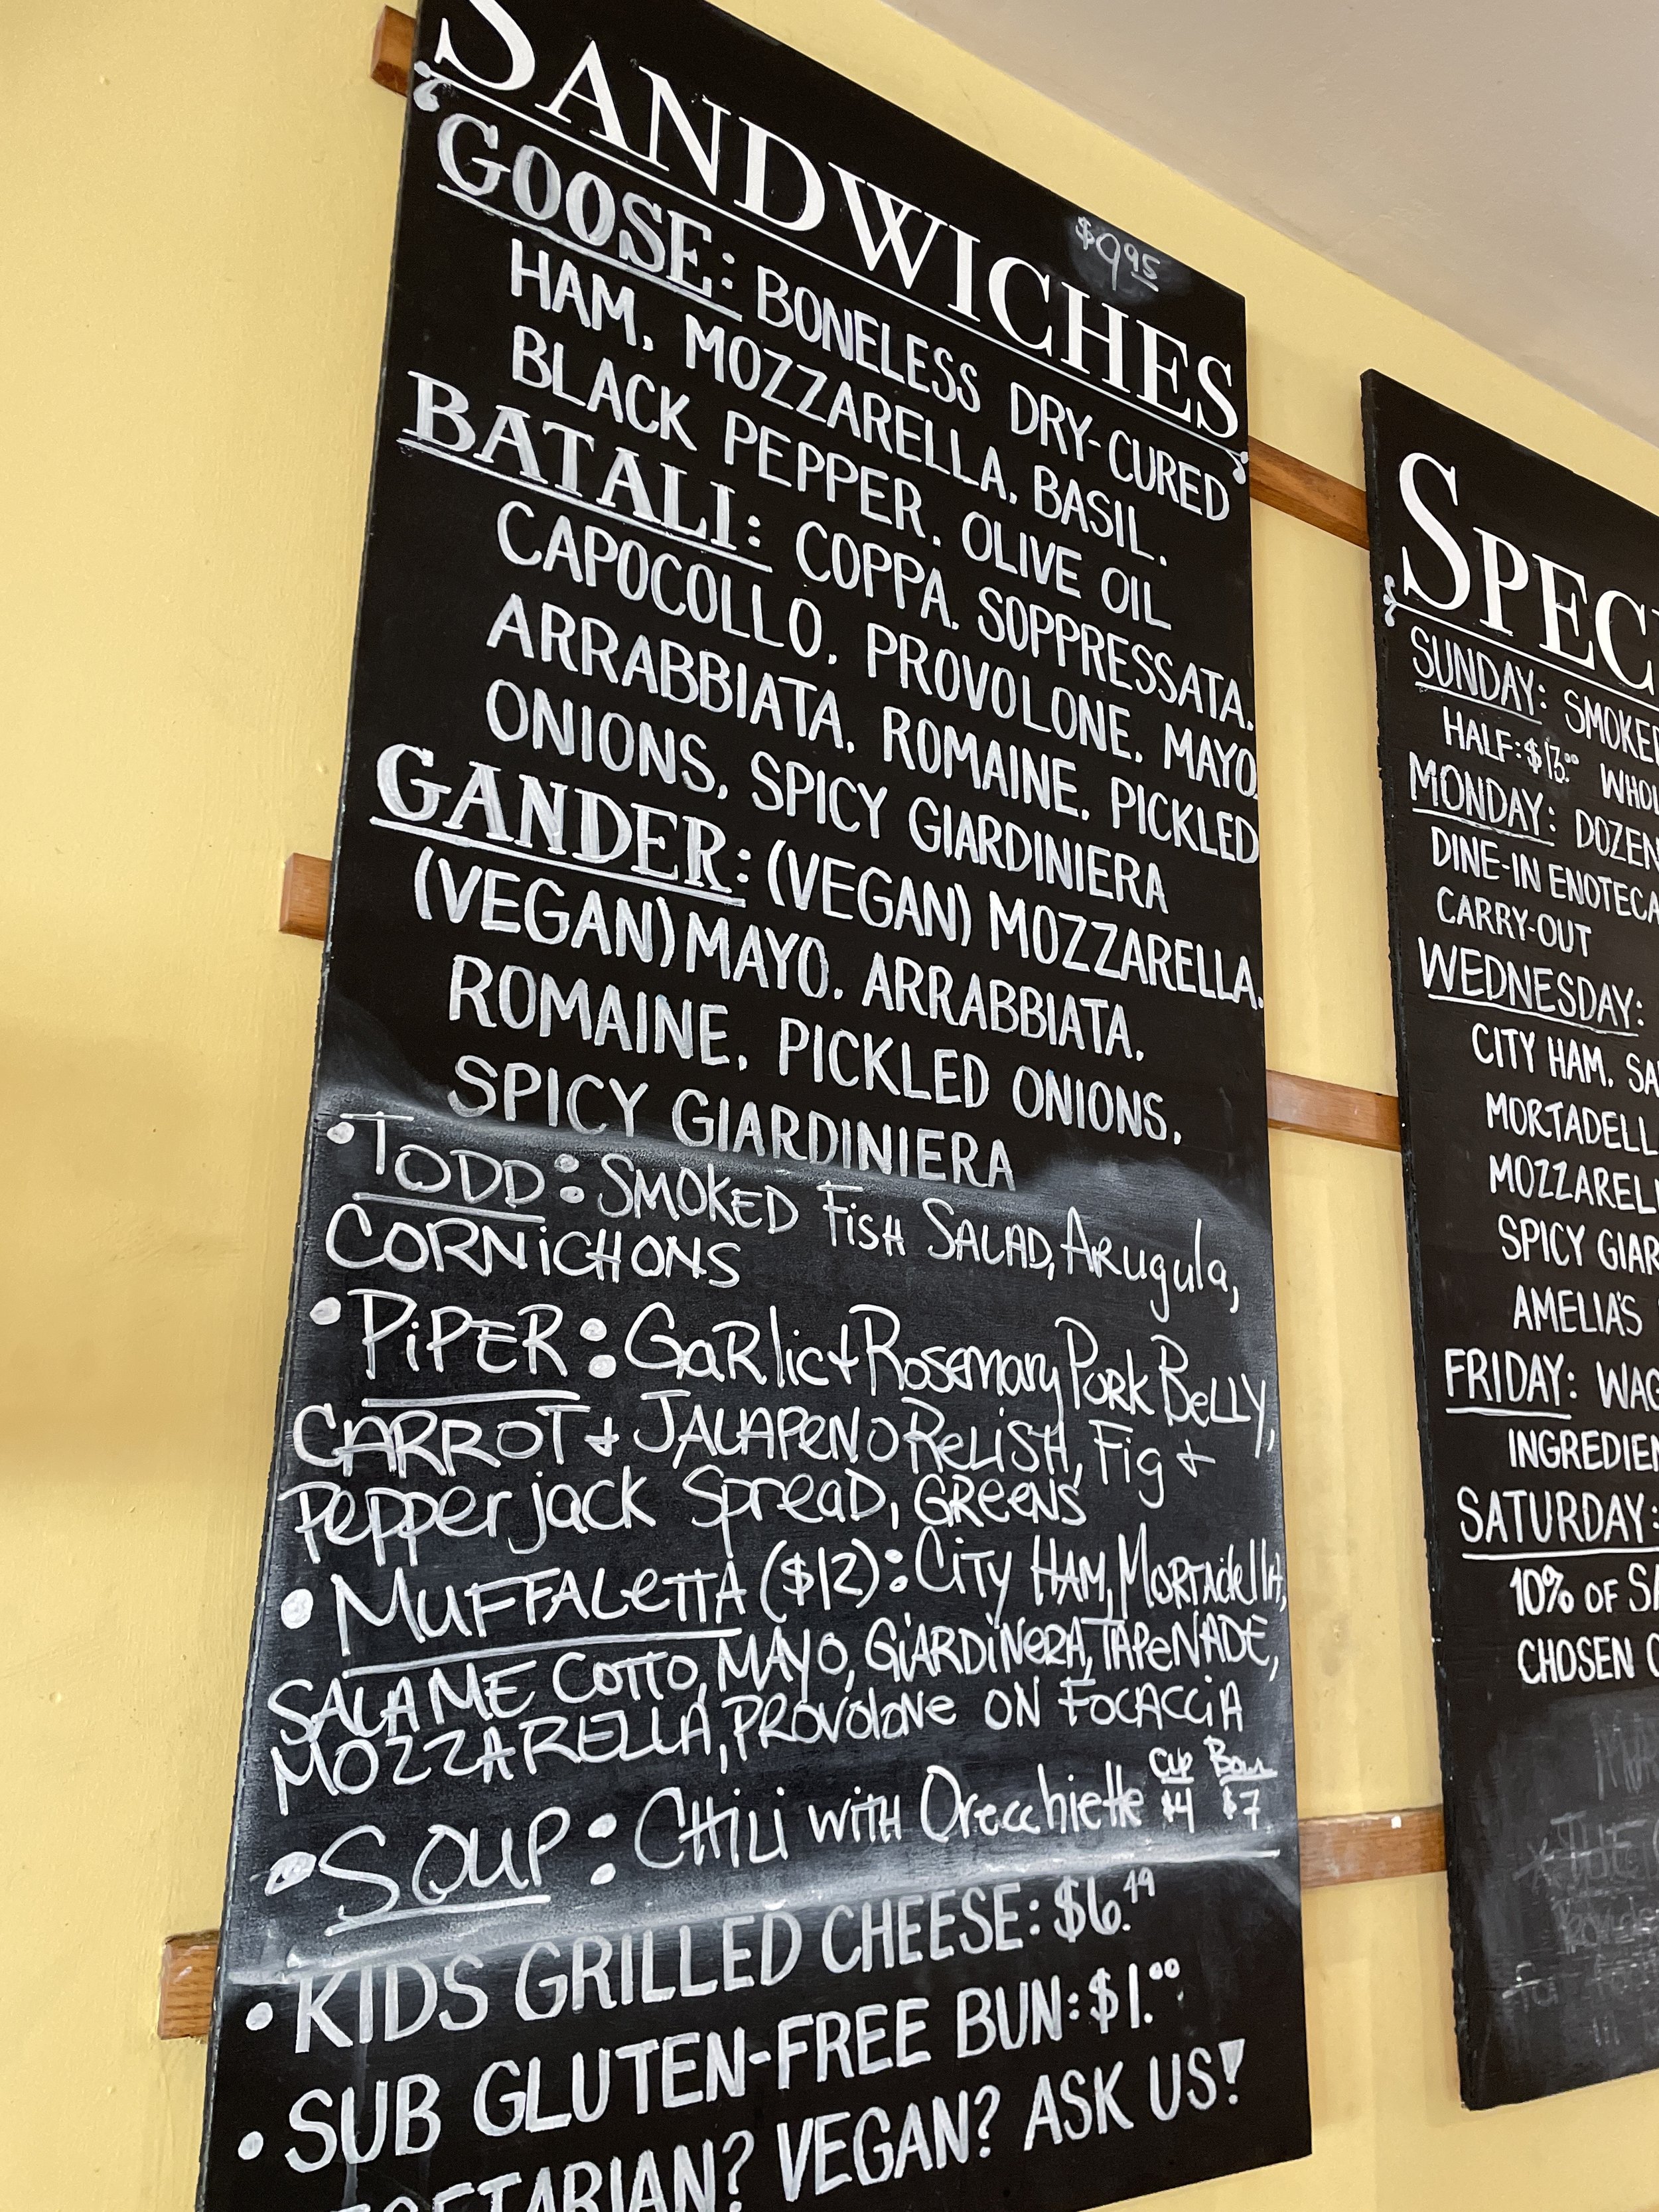 SANDWICHES
$9.95
GOOSE: BONELESS DRY-CURED
HAM, MOZZARELLA, BASIL,
BLACK PEPPER, OLIVE OIL
BATALI: COPPA, SOPPRESSATA,
CAPOCOLLO, PROVOLONE, MAYO,
ARRABBIATA, ROMAINE, PICKLED
ONIONS, SPICY GIARDINIERA
GANDER: (VEGAN) MOZZARELLA,
(VEGAN) MAYO, ARRABBIATA,
ROMAINE, PICKLED ONIONS,
SPICY GIARDINIERA
•TODD: SMOKED FISH SALAD, ARugula,
CORNiCHONS
•PiPER: GaRlic+Rosemary PORK BeLLY,
CARROT + JALAPENO ReLiSH, Fig +
Pepperjack SpreAD, GReeNS
•MUFFALeTTA ($12): CiTy HAM, MORTAdellA,
SALAME COTTO, MAYO, GiARDiNeRA, TAPeNADE,
MOZZARELLA, PROVOloNe ON FOCACCiA
•SOUP: CHiLi wiTH Orecchiette Cup $4 Bowl $7
• KIDS GRILLED CHEESE: $6.49
• SUB GLUTEN-FREE BUN: $1.00
VEGAN? ASK US!
SUNDAY:
HALF: $13.00
MONDAY: DOZEN
DINE-IN ENOTECA
CARRY-OUT
WEDNESDAY:
CITY HAM,
SPICY
AMELIA'S
FRIDAY:
SATURDAY:
10% OF
CHOSEN